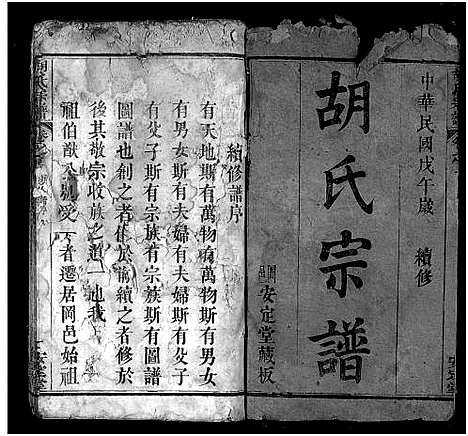 中華民國戊午歲 續修
胡氏宗譜
安定堂藏板
續修譜序
有天地斯有萬物有萬物斯有男女
有男女斯有夫婦有夫婦斯有父子
有父子斯有宗族有宗族斯有圖譜
圖譜也創之者作於前續之者修於
後其敬宗收族之道一也我
祖伯猷公受 者遷居岡邑始祖